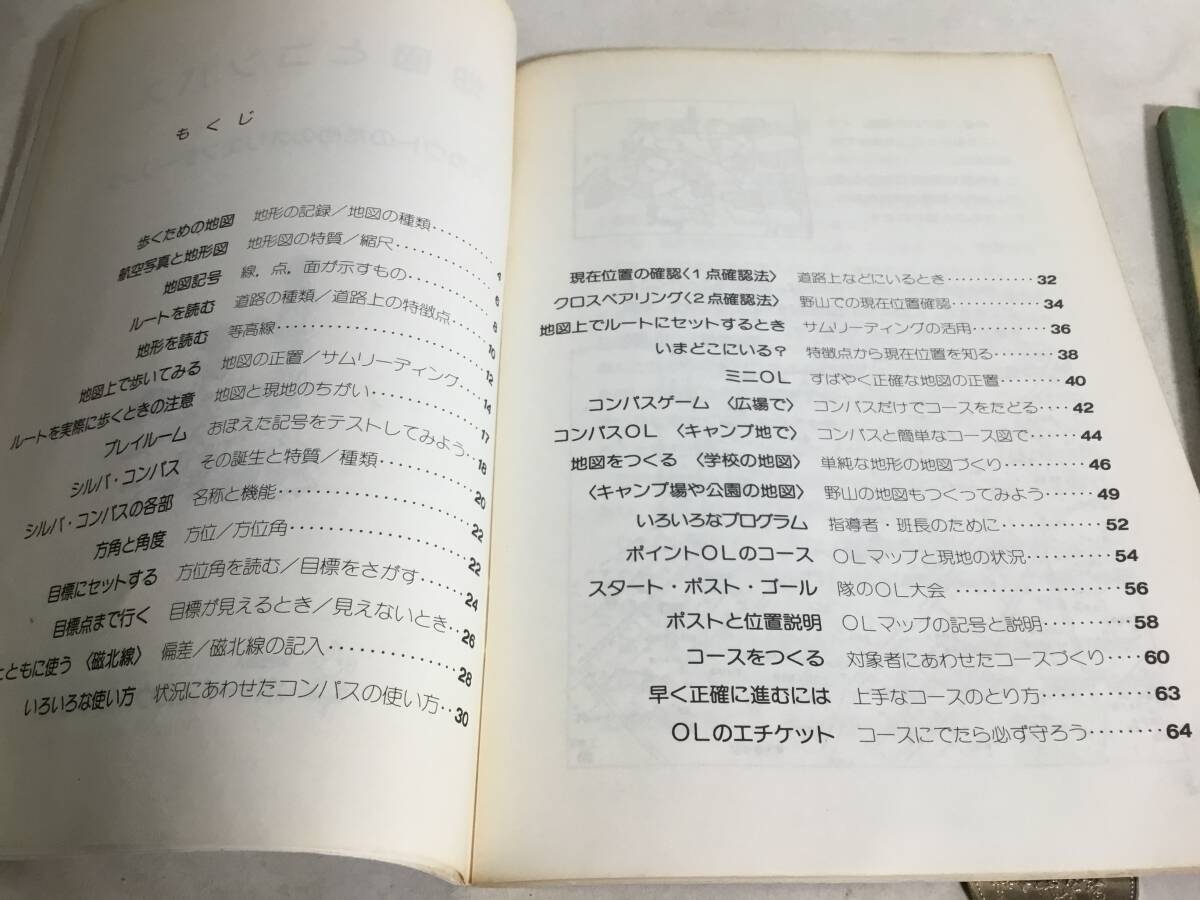 もくじ
歩くための地図 地形の記録／地図の種類‥‥‥‥ 4
航空写真と地形図 地形図の特質／縮尺‥‥‥‥ 6
地図記号 線，点，面が示すもの‥‥‥‥ 8
ルートを読む 道路の種類／道路上の特徴点‥‥‥‥ 10
地形を読む 等高線‥‥‥‥ 12
地図上で歩いてみる 地図の正置／サムリーディング‥‥‥‥ 14
ルートを実際に歩くときの注意 地図と現地のちがい‥‥‥‥ 17
プレイルーム おぼえた記号をテストしてみよう‥‥ 18
シルバ・コンパス その誕生と特質／種類‥‥‥‥ 20
シルバ・コンパスの各部 名称と機能‥‥‥‥ 22
方角と角度 方位／方位角‥‥‥‥ 22
目標にセットする 方位角を読む／目標をさがす‥‥‥‥ 24
目標点まで行く 目標が見えるとき／見えないとき‥‥ 26
ともに使う〈磁北線〉 偏差／磁北線の記入‥‥‥‥ 28
いろいろな使い方 状況にあわせたコンパスの使い方‥‥ 30
現在位置の確認〈1点確認法〉 道路上などにいるとき‥‥‥‥ 32
クロスベアリング〈2点確認法〉 野山での現在位置確認‥‥‥‥ 34
地図上でルートにセットするとき サムリーディングの活用‥‥‥‥ 36
いまどこにいる？ 特徴点から現在位置を知る‥‥‥‥ 38
ミニOL すばやく正確な地図の正置‥‥‥‥ 40
コンパスゲーム〈広場で〉 コンパスだけでコースをたどる‥‥ 42
コンパスOL〈キャンプ地で〉 コンパスと簡単なコース図で‥‥‥‥ 44
地図をつくる〈学校の地図〉 単純な地形の地図づくり‥‥‥‥ 46
〈キャンプ場や公園の地図〉 野山の地図もつくってみよう‥‥‥‥ 49
いろいろなプログラム 指導者・班長のために‥‥‥‥ 52
ポイントOLのコース OLマップと現地の状況‥‥‥‥ 54
スタート・ポスト・ゴール 隊のOL大会 ‥‥‥‥ 56
ポストと位置説明 OLマップの記号と説明‥‥‥‥ 58
コースをつくる 対象者にあわせたコースづくり‥‥ 60
早く正確に進むには 上手なコースのとり方‥‥‥‥ 63
OLのエチケット コースにでたら必ず守ろう‥‥‥‥ 64